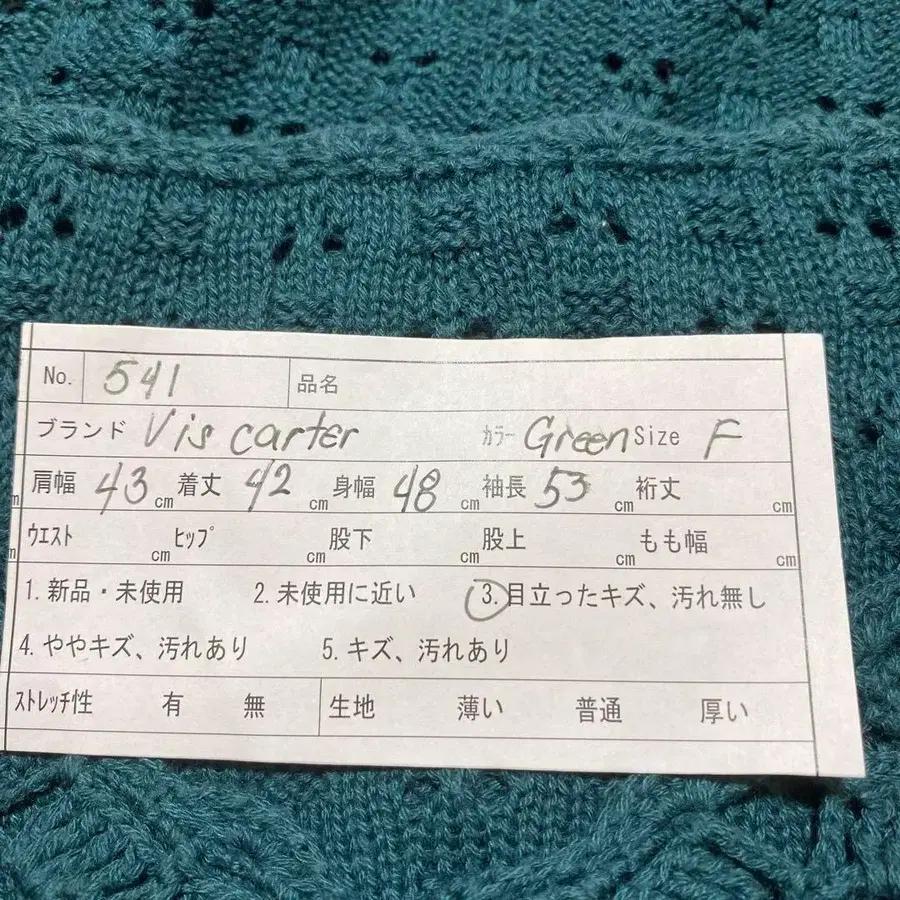 No. 541 品名
ブランド Vis carter カラー Green Size F
肩幅 43 cm 着丈 42 cm 身幅 48 cm 袖長 53 cm 裄丈 cm
ウエスト cm ヒップ cm 股下 cm 股上 cm もも幅 cm
1. 新品・未使用 2. 未使用に近い 3. 目立ったキズ、汚れ無し
4. ややキズ、汚れあり 5. キズ、汚れあり
ストレッチ性 有 無 生地 薄い 普通 厚い